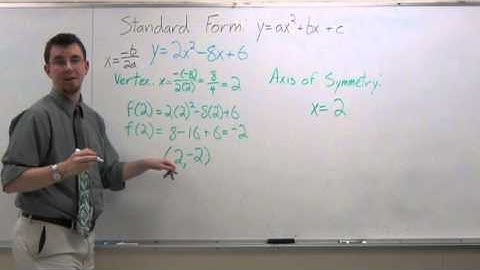 Standard Form: y=ax²+bx+c
x=-b/2a
y=2x²-8x+6
Vertex: x=-(-8)/2(2)=8/4=2
f(2)=2(2)²-8(2)+6
f(2)=8-16+6=-2
(2,-2)
Axis of Symmetry:
x=2